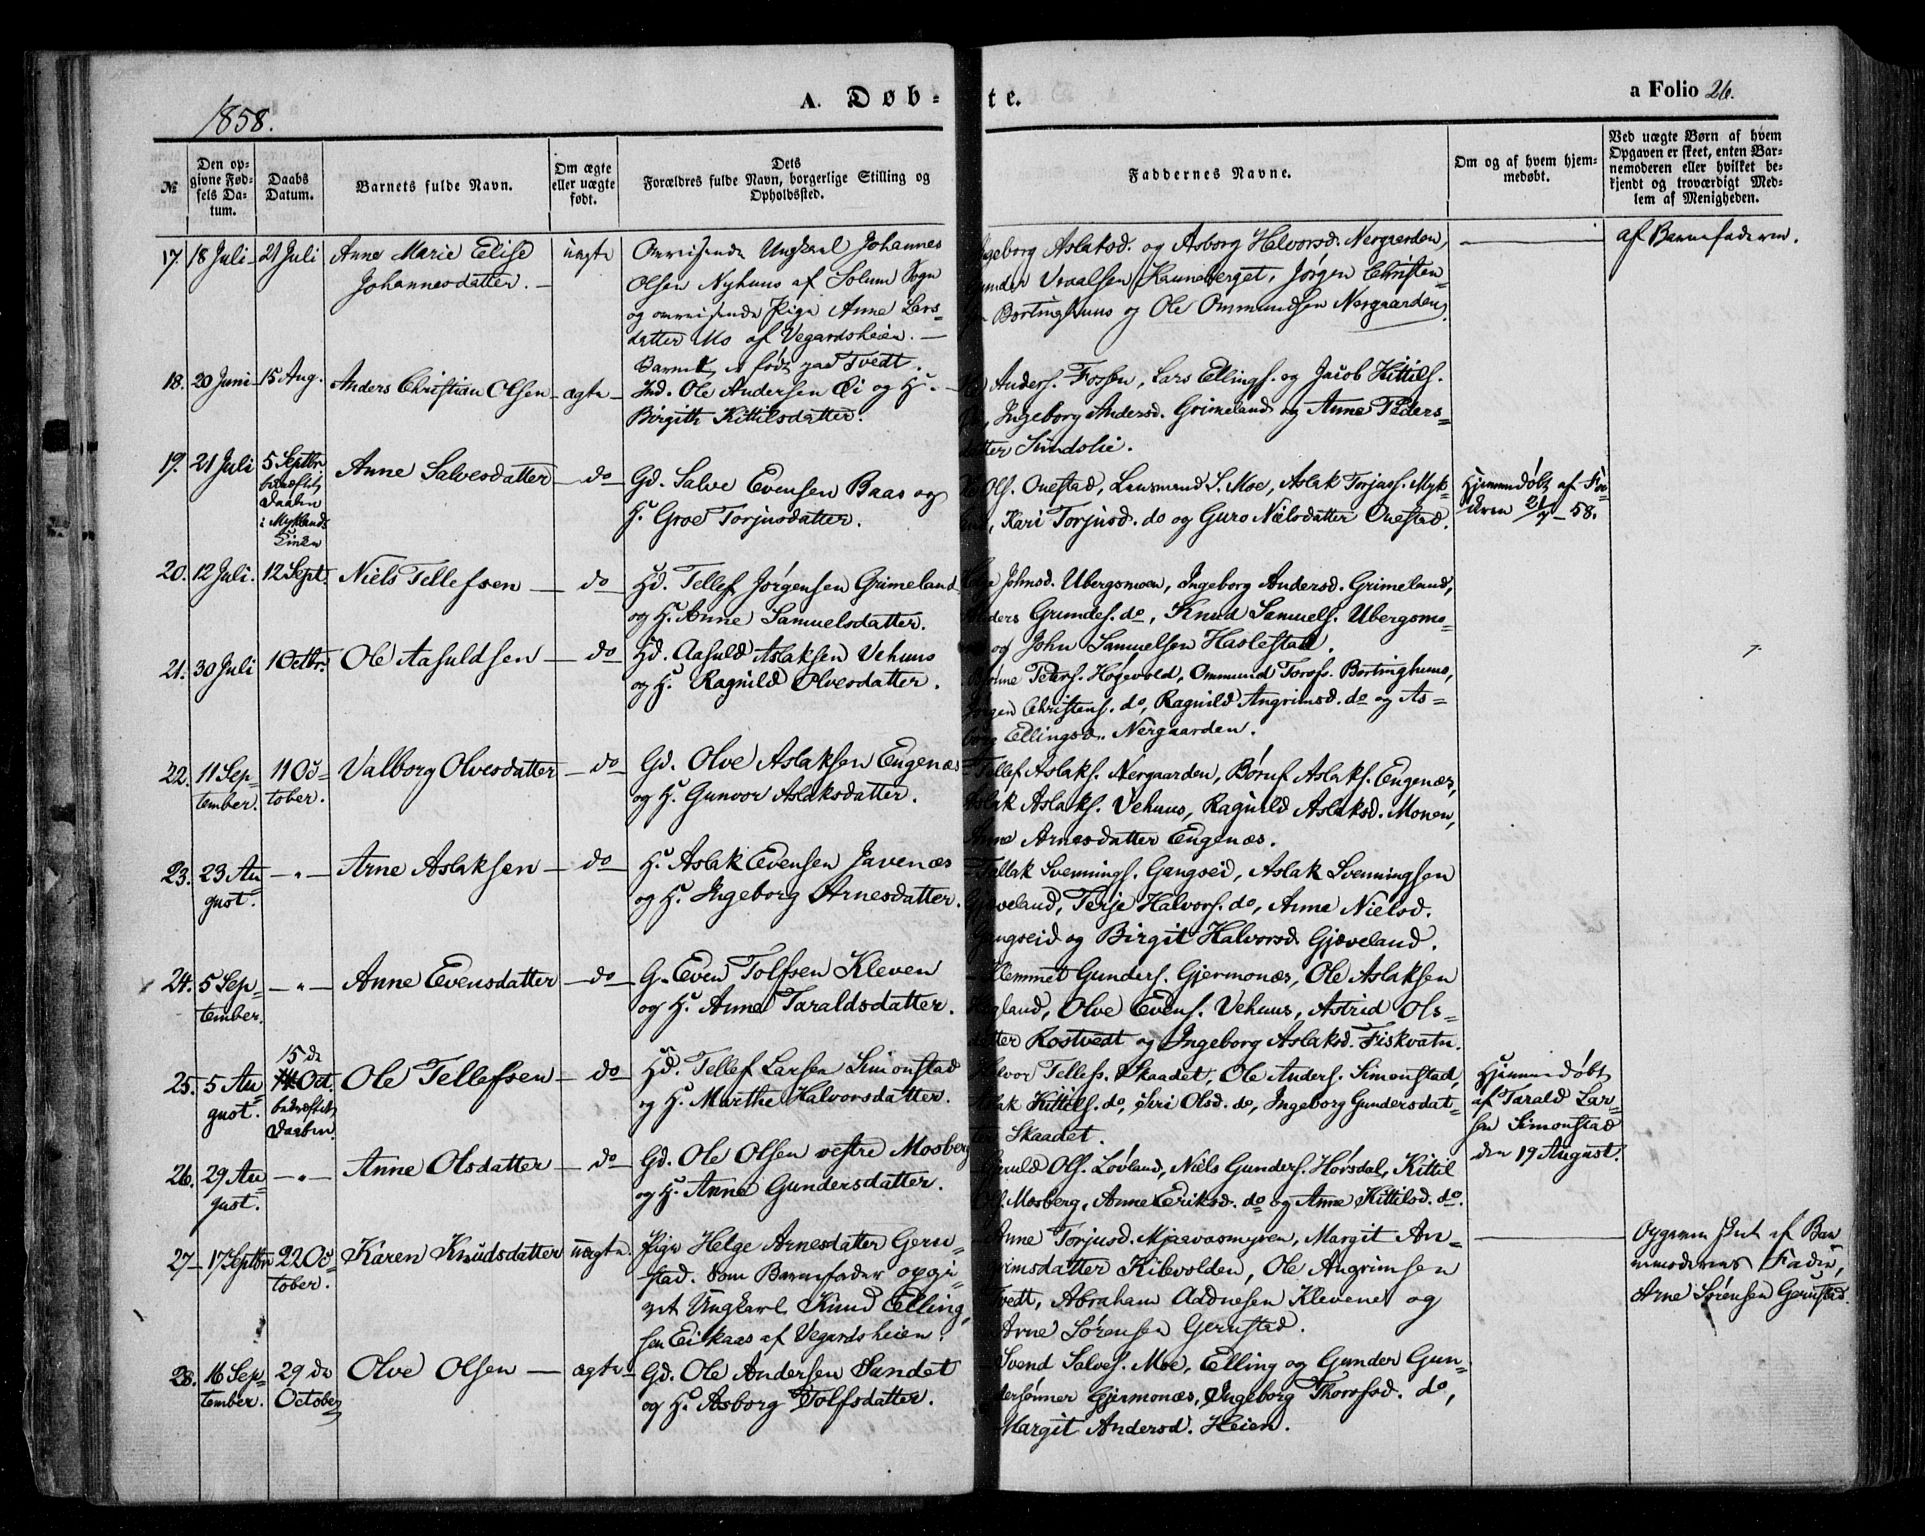 1858.
A. Døb-
te.
a Folio 26.
№
Den op-
givne Fød-
sels Da-
tum.
Daabs
Datum.
Barnets fulde Navn.
Om ægte
eller uægte
født.
Dets
Forældres fulde Navn, borgerlige Stilling og
Opholdssted.
Faddernes Navne.
Om og af hvem hjem-
medøbt.
Ved uægte Børn af hvem
Opgaven er skeet, enten Bar-
nemoderen eller hvilket be-
kjendt og troværdigt Med-
lem af Menigheden.
17. 18 Juli 21 Juli Anne Marie Elise
Johannesdatter.
uægte
Omreisende Ungkarl Johannes
Olsen Nyhuus af Solum Sogn
og omreisende Pige Anne Lars-
datter Mo af Vegardsheien.
Barnet er født paa Tvedt.
Ingeborg Aslaksd. og Asborg Halvorsd. Nergaarden,
Gunder Vraalsen Hauneberget, Jørgen Christen-
Bortinghuus og Ole Ommundsen Nergaarden.
af Barnefaderen.
18. 20 Juni 15 Aug. Anders Christian Olsen ægte
Ind. Ole Andersen Øi og H.
Birgith Kittilsdatter.
Anders. Fossen, Lars Ellings. og Jacob Kittils.
Ingeborg Andersd. Grimeland og Anne Peders-
datter Sundslie.
19. 21 Juli 5 Septbr.
bekræftet
Daaben
i Myklands
Kirken
Anne Salvesdatter do
Gd. Salve Evensen Baas og
H. Groe Torjusdatter.
Ols. Onestad, Lensmand S. Moe, Aslak Torjuss. Myk-
land, Kari Torjusd. do og Guro Nielsdatter Onestad.
Hjemmedøbt af Fa-
deren 21/7 - 58.
20. 12 Juli. 12 Sept. Niels Tellefsen do
Hd. Tellef Jørgensen Grimeland
og H. Anne Samuelsdatter.
Johnsd. Ubergsmoen, Ingeborg Andersd. Grimeland,
Anders Grundes. do, Knud Samuels. Ubergsmo-
og John Samuelsen Haslestad.
21. 30 Juli 1 Octbr. Ole Aasuldsen do
Hd. Aasuld Aslaksen Vehuus
og H. Ragnild Olvesdatter.
Peters. Høgevold, Ommund Torefs. Bortinghuus,
Jørgen Christens. do, Ragnild Angrimsd. do og As-
borg Ellingsd. Nergaarden.
22. 11 Sep-
tember.
11 Oc-
tober.
Valborg Olvesdatter do
Gd. Olve Aslaksen Engenæs
og H. Gunvor Aslaksdatter.
Tellef Aslaks. Nergaarden, Børuf Aslaks. Engenæs,
Aslak Aslaks. Vehuus, Ragnild Aslaksd. Monen,
Anne Arnesdatter Engenæs.
23. 23 Au
gust.
-"-
Arne Aslaksen do
H. Aslak Evensen Javenæs
og H. Ingeborg Arnesdatter.
Tallak Svennings. Gangseid, Aslak Svenningsen
Gjæveland, Terje Halvors. do, Anne Nielsd.
Gangseid og Birgit Halvorsd. Gjæveland.
24. 5 Sep-
tember.
-"-
Anne Evensdatter do
G. Even Tolfsen Kleven
og H. Anne Taraldsdatter.
Klemmet Gunders. Gjermonæs, Ole Aslaksen
Hegland, Olve Evens. Vehuus, Astrid Ols-
datter Rostvedt og Ingeborg Aslaksd. Fiskvatn.
25. 5 Au-
gust.
15 de
Oct.
bekræftet
Daaben.
Ole Tellefsen do
Hd. Tellef Larsen Simonstad
og H. Marthe Halvorsdatter.
Halvor Tellefs. Skaadet, Ole Anders. Simonstad,
Aslak Kittils. do, Siri Olsd. do, Ingeborg Gundersdat-
ter Skaadet.
Hjemmedøbt
af Tarald Lar-
sen Simonstad
den 19 August.
26. 29 Au-
gust.
-"-
Anne Olsdatter do
Gd. Ole Olsen vestre Mosberg
og H. Anne Gundersdatter.
Ols. Løvland, Niels Gunders. Hørsdal, Kittil
Ols. Mosberg, Anne Eriksd. do og Anne Kittilsd. do.
27 17 Septbr 22 Oc-
tober.
Karen Knudsdatter uægte.
Pige Helge Arnesdatter Geru-
stad. Som Barnefader opgi-
vet Ungkarl Knud Elling-
sen Eilkaas af Vegardsheien.
Anne Torjusd. Mjaavasmyren, Margit An-
grimsdatter Kilevolden, Ole Angrimsen
Tvedt, Abraham Addnesen Klevene og
Arne Sørensen Gerustad.
Opgivn. skeet af Bar
nemoderens Fader,
Arne Sørensen Gerustad.
28. 16 Sep-
tember.
29 de
October
Olve Olsen ægte
Gd. Ole Andersen Sandet
og H. Asborg Tolfsdatter.
Svend Salves. Moe, Elling og Gunder Gun-
dersønner Gjermonæs, Ingeborg Thorefsd. do,
Margit Andersd. Heien.